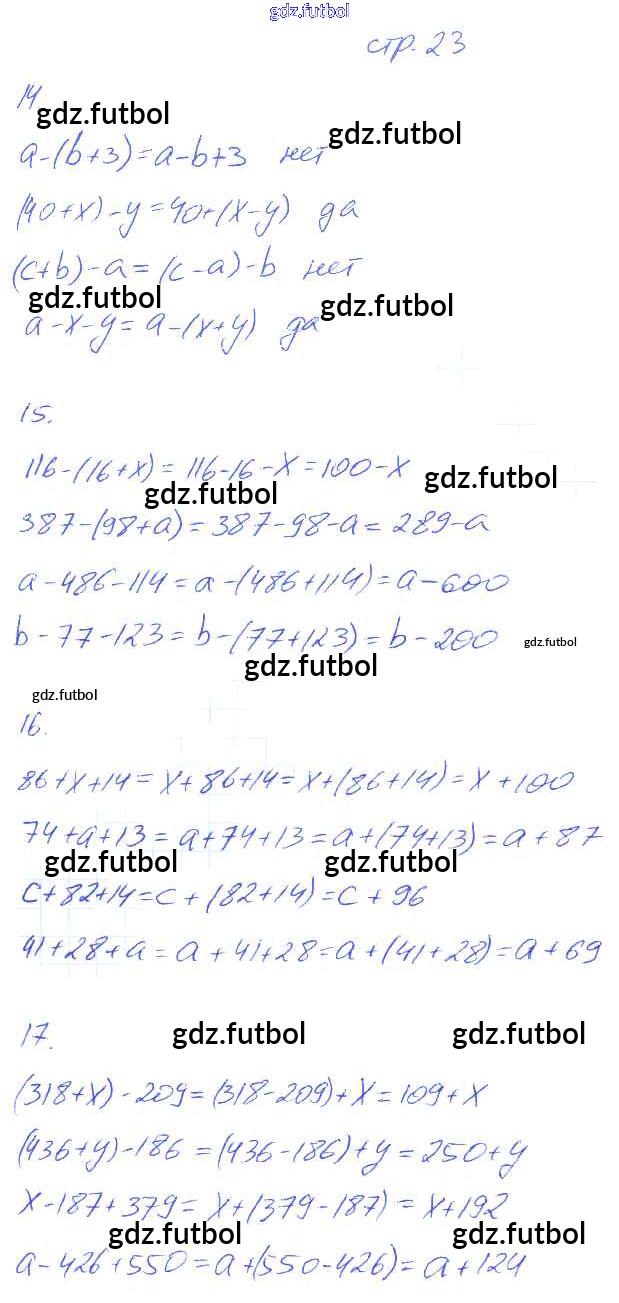 gdz.futbol
стр. 23
14
gdz.futbol
gdz.futbol
a-(b+3)=a-b+3 нет
(40+x)-y=40+(x-y) да
(c+b)-a=(c-a)-b нет
gdz.futbol
gdz.futbol
a-x-y=a-(x+y) да
15.
116-(16+x)=116-16-x=100-x
gdz.futbol
gdz.futbol
387-(98+a)=387-98-a=289-a
a-486-114=a-(486+114)=a-600
b-77-123=b-(77+123)=b-200
gdz.futbol
gdz.futbol
gdz.futbol
16.
86+x+14=x+86+14=x+(86+14)=x+100
74+a+13=a+74+13=a+(74+13)=a+87
gdz.futbol
gdz.futbol
c+82+14=c+(82+14)=c+96
41+28+a=a+41+28=a+(41+28)=a+69
17.
gdz.futbol
gdz.futbol
(318+x)-209=(318-209)+x=109+x
(436+y)-186=(436-186)+y=250+y
x-187+379=x+(379-187)=x+192
gdz.futbol
gdz.futbol
a-426+550=a+(550-426)=a+124